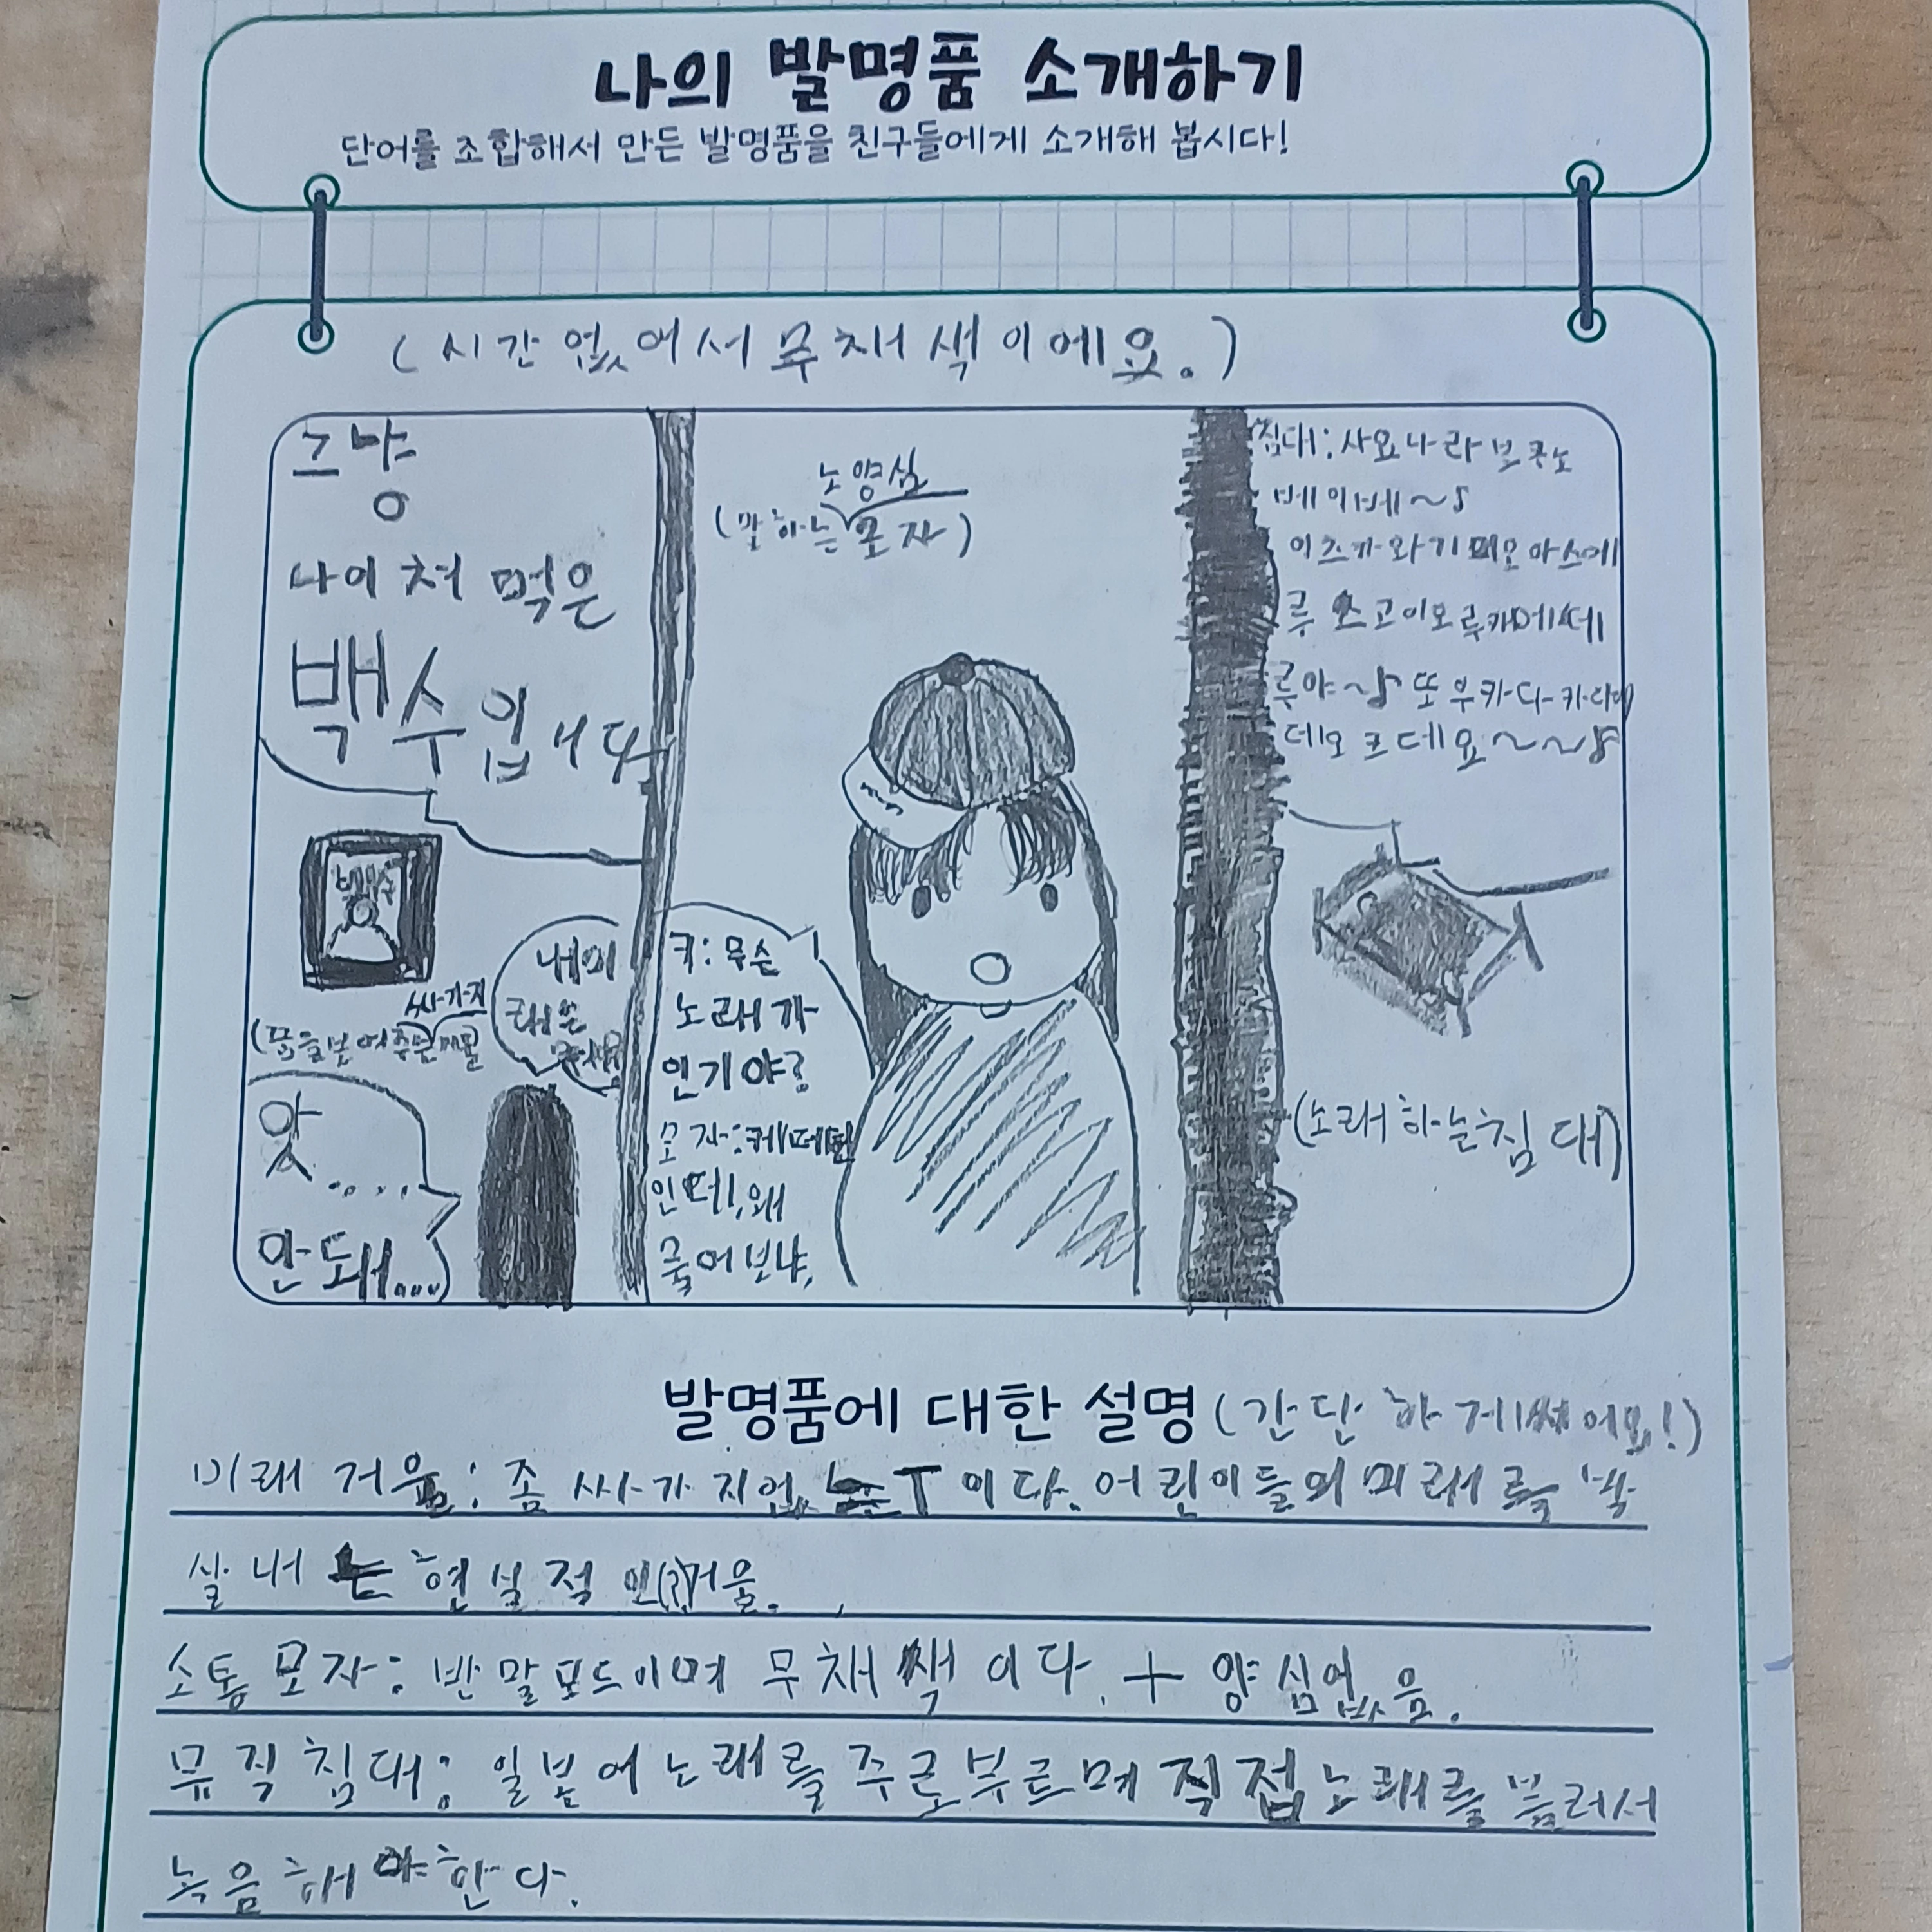 나의 발명품 소개하기
단어를 조합해서 만든 발명품을 친구들에게 소개해 봅시다!
(시간 없어서 무채색이에요.)
그냥
나이 처먹은
백수입니다
백수
싸가지
내 미
래는
앗.....
안돼....
노양심
(말하는 모자)
키: 무슨
노래가
인기야?
모자: 케데헌
인데, 왜
물어보냐,
침대: 사요나라 보쿠노
베이베~♪
(노래하는 침대)
발명품에 대한 설명 (간단하게 썼어요!)
미래 거울: 좀 싸가지없는 T이다. 어린이들의 미래를 박
살내는 현실적인(?)거울.
소통 모자: 반말모드이며 무채색이다. + 양심없음.
뮤직침대: 일본어 노래를 주로 부르며 직접 노래를 불러서
녹음해야 한다.